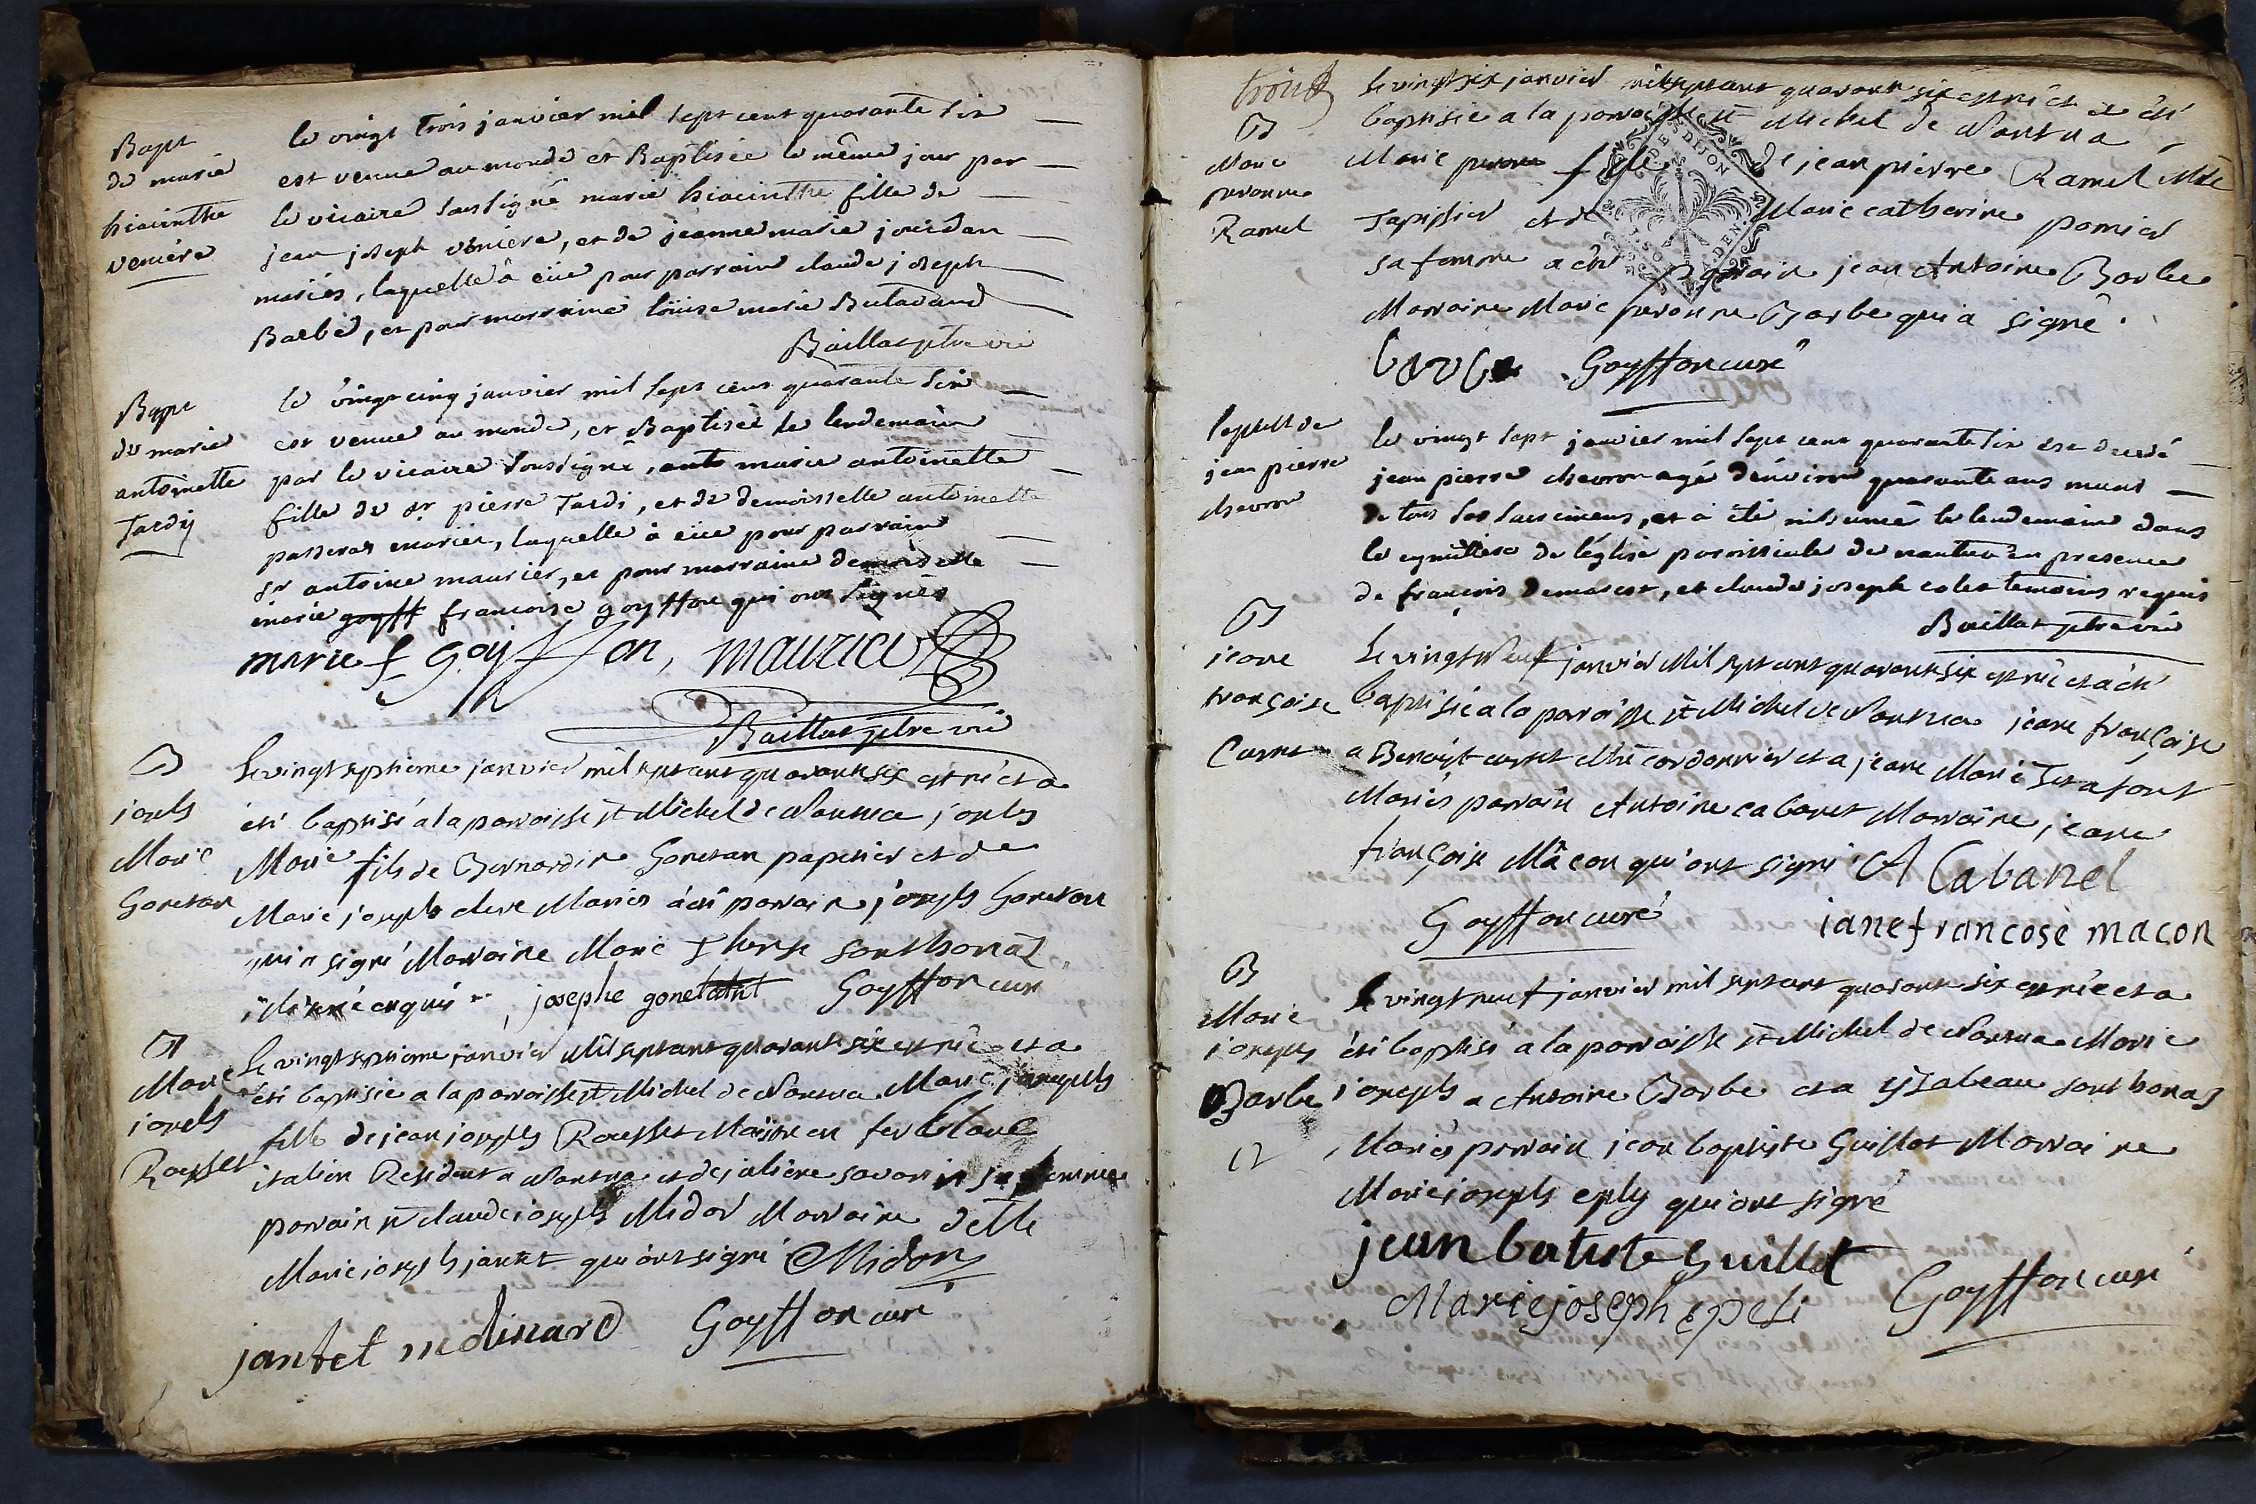 Bapt
de marie
hiacinthe
veniere
le vingt trois janvier mil sept cent quarante six
est venue au monde et Baptisée le même jour par
le vicaire soussigné marie hiacinthe fille de
jean joseph veniere, et de jeanne marie jourdan
mariés, laquelle à eüe pour parrain claude joseph
Barbe, et pour marraine loüise marie
Baillat ptre vic
Bapt
de marie
antoinette
Tardy
le vingt cinq janvier mil sept cent quarante six
est venue au monde, et Baptisée le lendemain
par le vicaire soussigné, marie antoinette
fille de sr pierre Tardi, et de demoiselle antoinette
passerat mariés, laquelle à eüe pour parrain
sr antoine maurier, et pour marraine demoiselle
marie goyff francoise goyffon qui ont signés
marie f goyffon, maurier
Baillat ptre vic
B
josephs
Marie
Gonetan
Le vingt septieme janvier mil sept cent quarante six est né et a
été baptisé a la parroisse st Michel de Nantua josephs
Marie fils de Bernardin Gonetan papetier et de
Marie josephs cleve Mariés a été parrain josephs Gonetan
qui a signé Marraine Marie Therese sonthonax
illitérée enquise josephe gonetant Goyffon curé
B
Marie
josephs
Rousset
Le vingt septieme janvier Mil sept cent quarante six est née et a
été baptisée a la parroisse st Michel de Nantua Marie josephs
fille de jean josephs Rousset Maître en fer blanc
italien Residant a Nantua et de juliene savarin sa femme
parrain sr claude josephs Midor Marraine delle
Marie josephs jantet qui ont signé Midor
jantet molinard Goyffon curé
trois
B
Marie
peronne
Ramel
Le vingt six janvier mil sept cent quarante six est née et a été
baptisée a la parroisse st Michel de Nantua
Marie peronne fille de jean pierre Ramel Mtre
Tapissier et de Marie catherine pomier
sa femme a été parrain jean Antoine Barbe
Marraine Marie peronne Barbe qui a signé.
barbe Goyffon curé
DES DIJON
sepult de
jean pierre
chevron
le vingt sept janvier mil sept cent quarante six est decedé
jean pierre chevron agé d'environ quarante ans muni
de tous les sacremens, et à été inhumé le lendemain dans
le cymettiere de l'église parroissiale de nantua en presence
de francois Demarcet, et claude joseph colet temoins requis
Baillat ptre vic
B
jeane
françoise
Curnet
Le vingt neuf janvier Mil sept cent quarante six est née et a été
baptisée a la parroisse st Michel de Nantua jeane françoise
a Benoyt curnet Mtre cordonnier et a jeane Marie Tetafort
Mariés parrain Antoine cabanet Marraine jeane
françoise Mâcon qui ont signé A Cabanel
Goyffon curé
iane francose macon
B
Marie
josephs
Barbe
12
Le vingt neuf janvier mil sept cent quarante six est née et a
été baptisé a la parroisse st Michel de Nantua Marie
josephs a Antoine Barbe et a ysabeau sonthonas
Mariés parrain jean baptiste Guillot Marraine
Marie josephs eply qui ont signé
jean batiste Guillot
Marie joseph epeli Goyffon curé